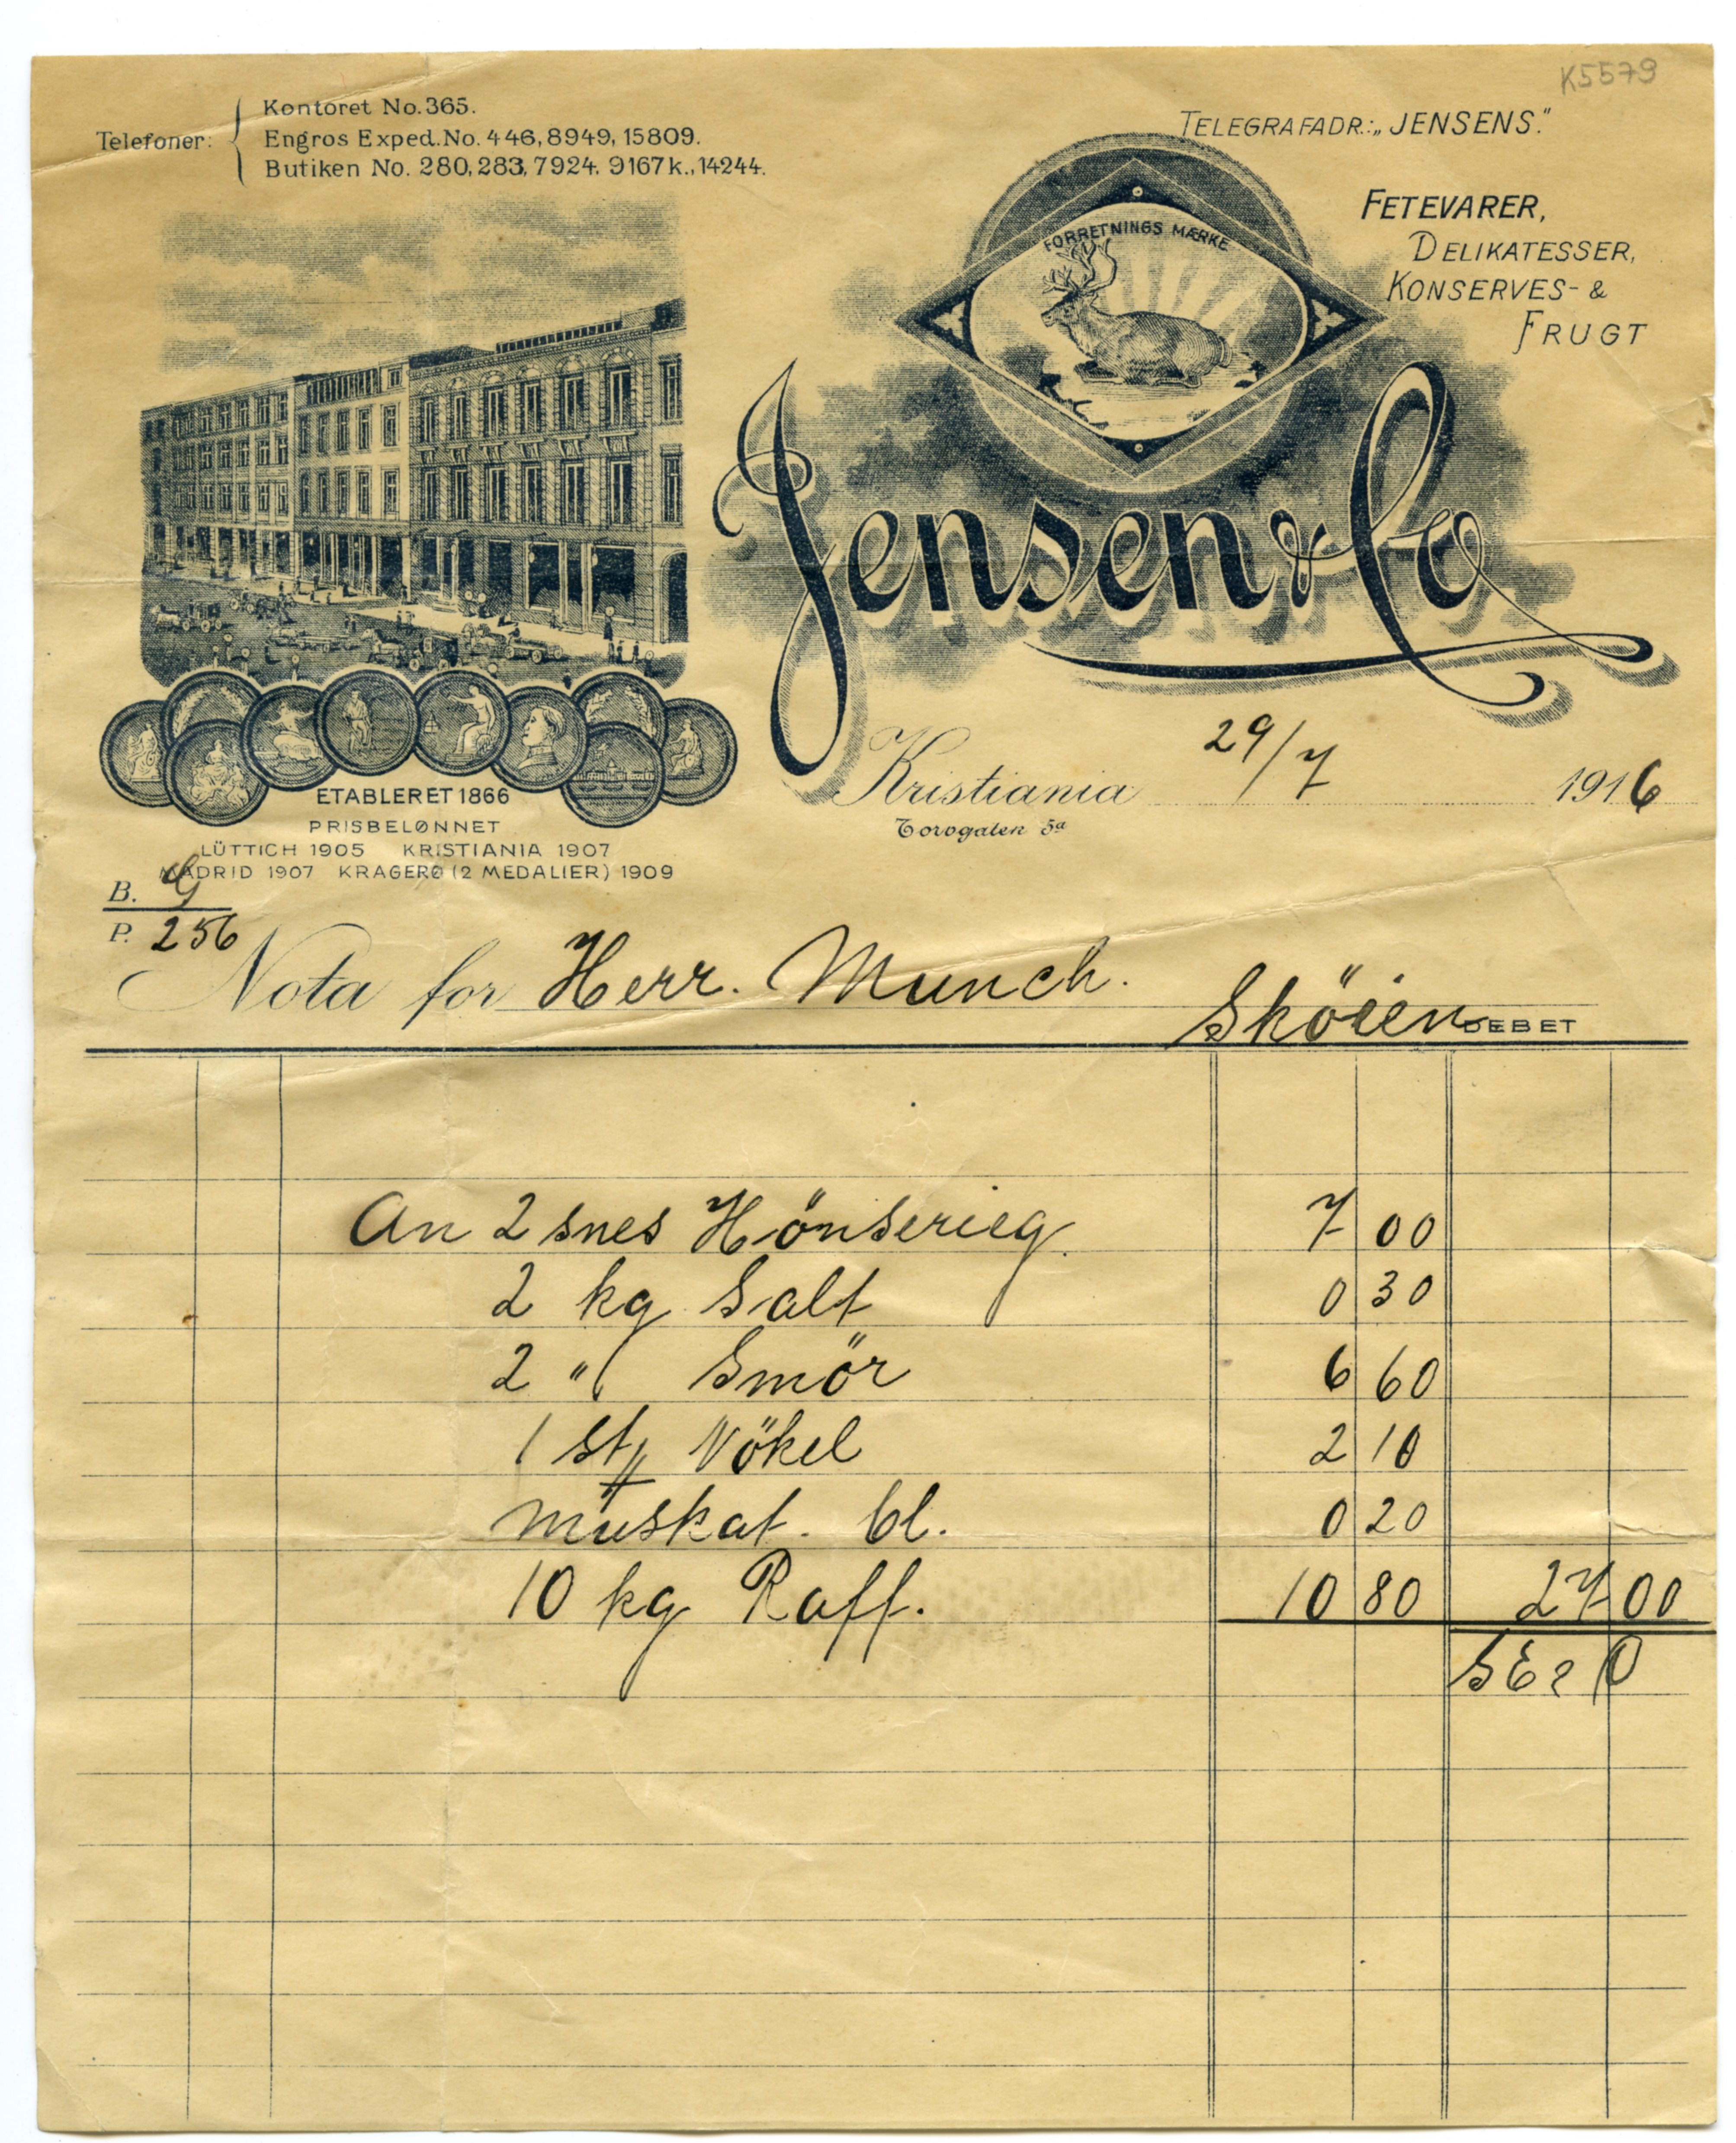 K5579
Telefoner:
Kontoret No. 365.
Engros Exped. No. 446, 8949, 15809.
Butiken No. 280, 283, 7924. 9167 k., 14244.
TELEGRAFADR.: „JENSENS."
FETEVARER,
DELIKATESSER,
KONSERVES- &
FRUGT
FORRETNINGS MÆRKE
Jensen & Co
Kristiania 29/7 1916
Torvgaten 5a
ETABLERET 1866
PRISBELØNNET
LÜTTICH 1905 KRISTIANIA 1907
MADRID 1907 KRAGERØ (2 MEDALIER) 1909
B.
P. 256
Nota for Herr. Munch.
Sköien DEBET
An 2 snes Hönserieg 7 00
2 kg Salt 0 30
2 " Smör 6 60
1 st Nökel 2 10
muskat. bl. 0 20
10 kg Raff. 10 80 27 00